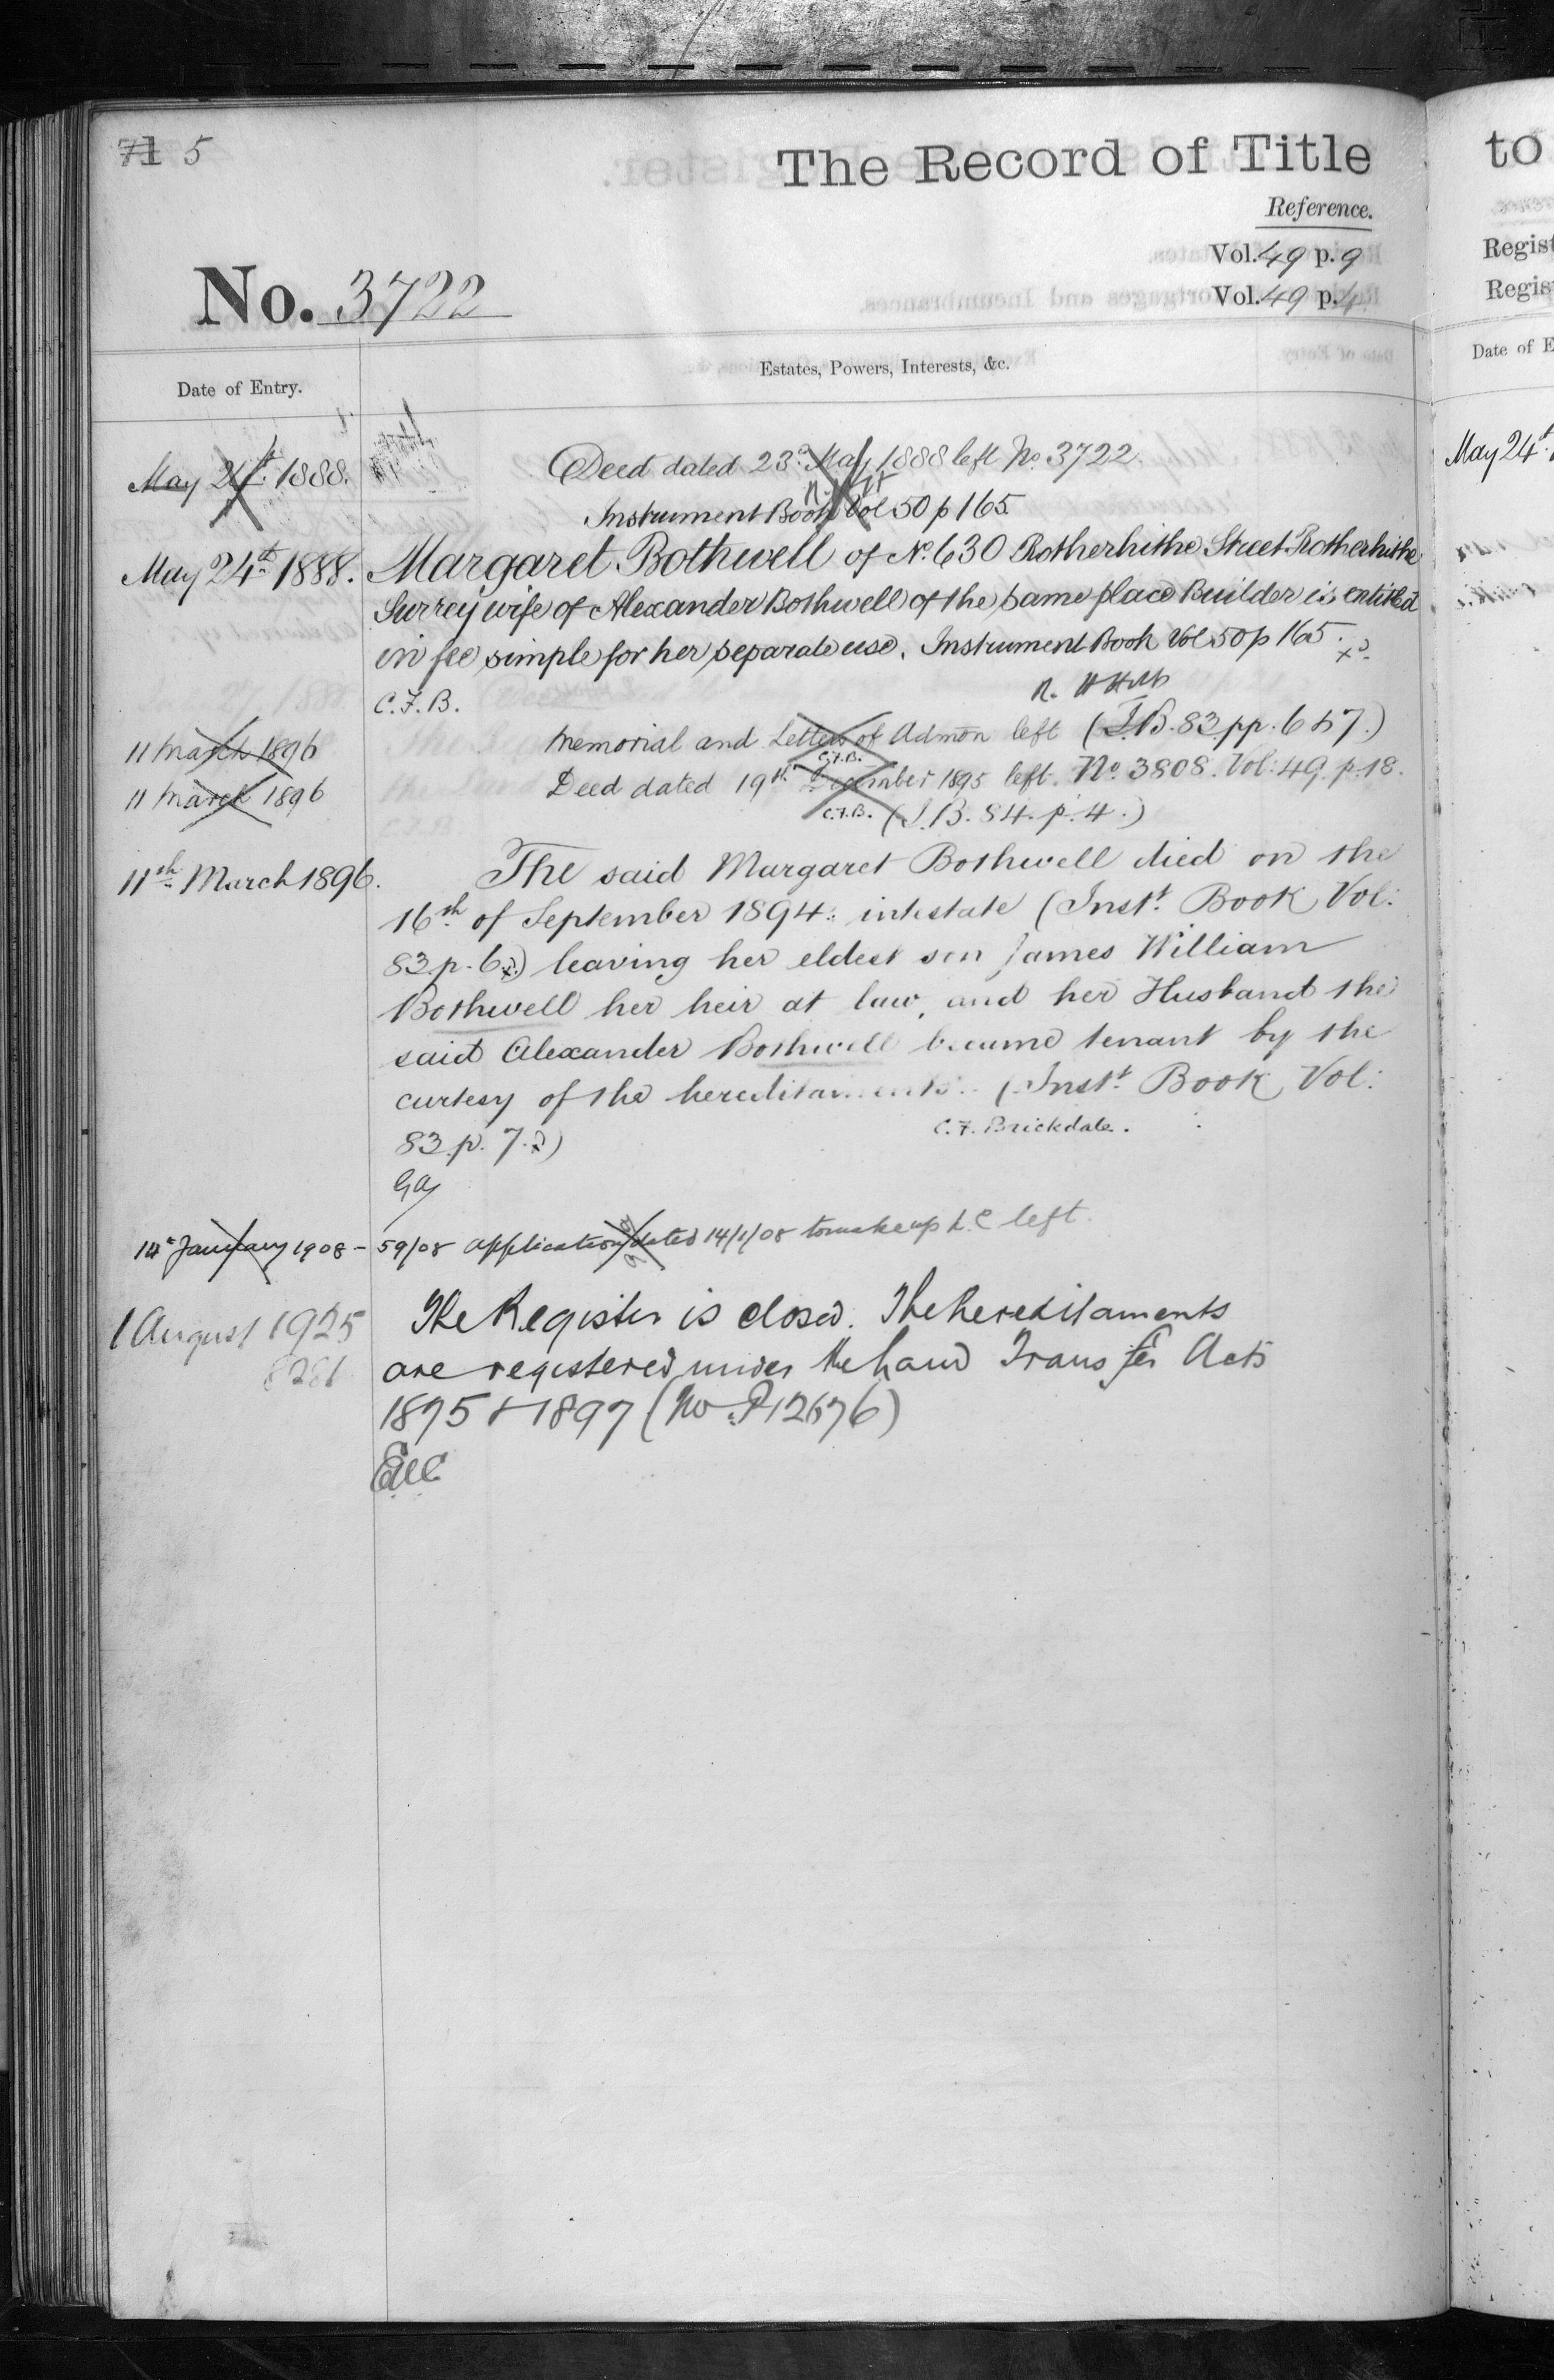 71 5
The Record of Title
Reference.
Vol. 49 p. 9
No. 3722
Vol. 49 p. 4
Date of Entry.
Estates, Powers, Interests, &c.
May 24th 1888.
Deed dated 23d May 1888 left No. 3722.
Instrument Book Vol 50 p 165
May 24th 1888.
Margaret Bothwell of No. 630 Rotherhithe Street Rotherhithe
Surrey wife of Alexander Bothwell of the same place Builder is entitled
in fee simple for her separate use. Instrument Book Vol 50 p 165.
C.F.B.
11 March 1896
Memorial and Letters of Admon left (I.B. 83 pp. 6 & 7.)
C.F.B.
11 March 1896
Deed dated 19th December 1895 left. No. 3808. Vol: 49. p. 18.
C.F.B. (I.B. 84. p. 4.)
11th March 1896.
The said Margaret Bothwell died on the
16th of September 1894: intestate (Instt. Book Vol:
83. p. 6) leaving her eldest son James William
Bothwell her heir at law, and her Husband the
said Alexander Bothwell became tenant by the
curtesy of the hereditaments. (Instt. Book Vol:
83. p. 7.)
C.F. Brickdale.
14th January 1908 –
59/08 application dated 14/1/08 to make up L.C left.
1 August 1925
The Register is closed. The hereditaments
are registered under the Land Transfer Acts
1875 & 1897 (No P12676)
to
Regist
Regis
Date of E
May 24th